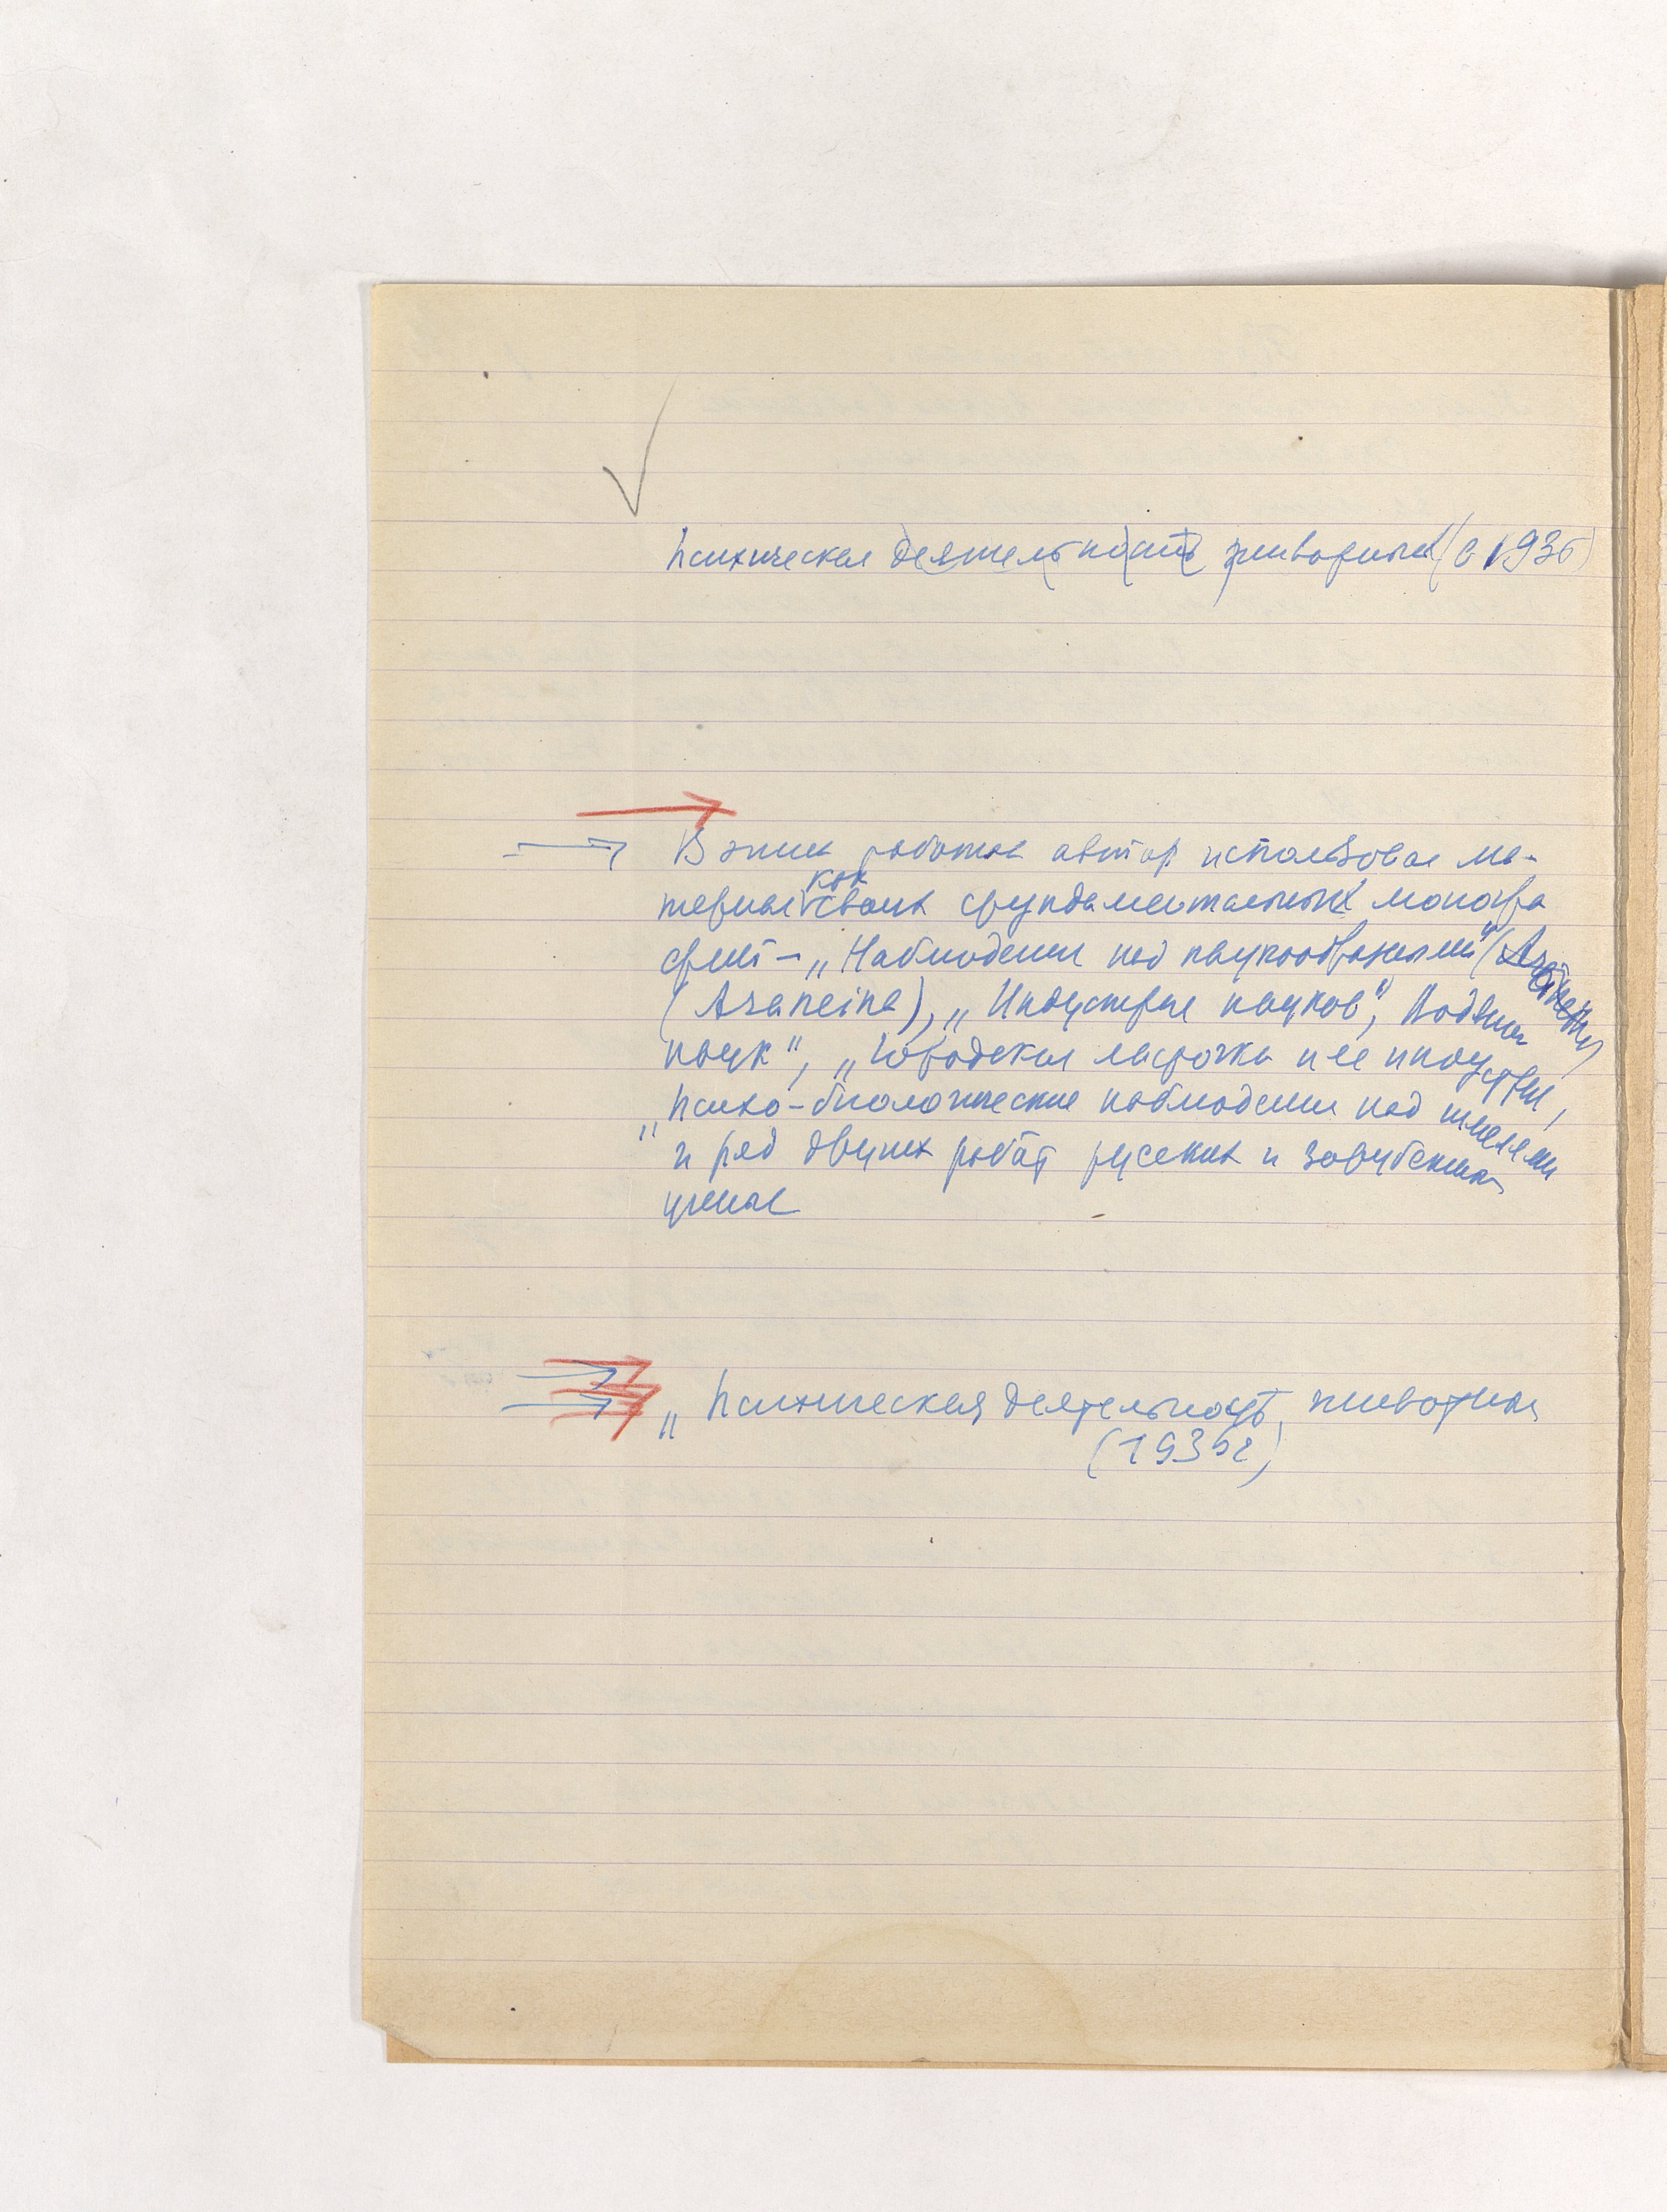 Психическая деятельность животных (с 1936)
В этих работах автор использовал ма-
териал как своих фундаментальных моногра
фий – „Наблюдения над паукообразными" (
(Araneina), „Индустрия пауков", Водяной
паук", „Городская ласточка и ее индустрия,
„Психо-биологические наблюдения над шмелями
и ряд других работ русских и зарубежных
ученых
„Психическая деятельность животных
(1936г)